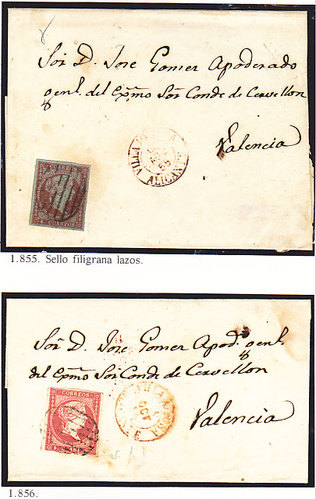 Sor. D. Jose Gomer Apoderado
genl. del Exmo Sor Conde de Cervellon
Valencia
ALICANTE
1.855. Sello filigrana lazos.
Sor. D. Jose Gomer Apod. genl.
del Exmo Sor Conde de Cervellon
Valencia
CORREOS
1.856.